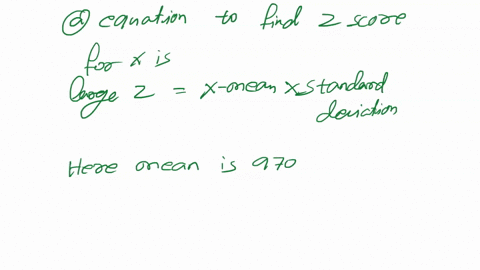 @ equation to find z score
for x is
large z = x-mean x standard
deviation
Here mean is 970